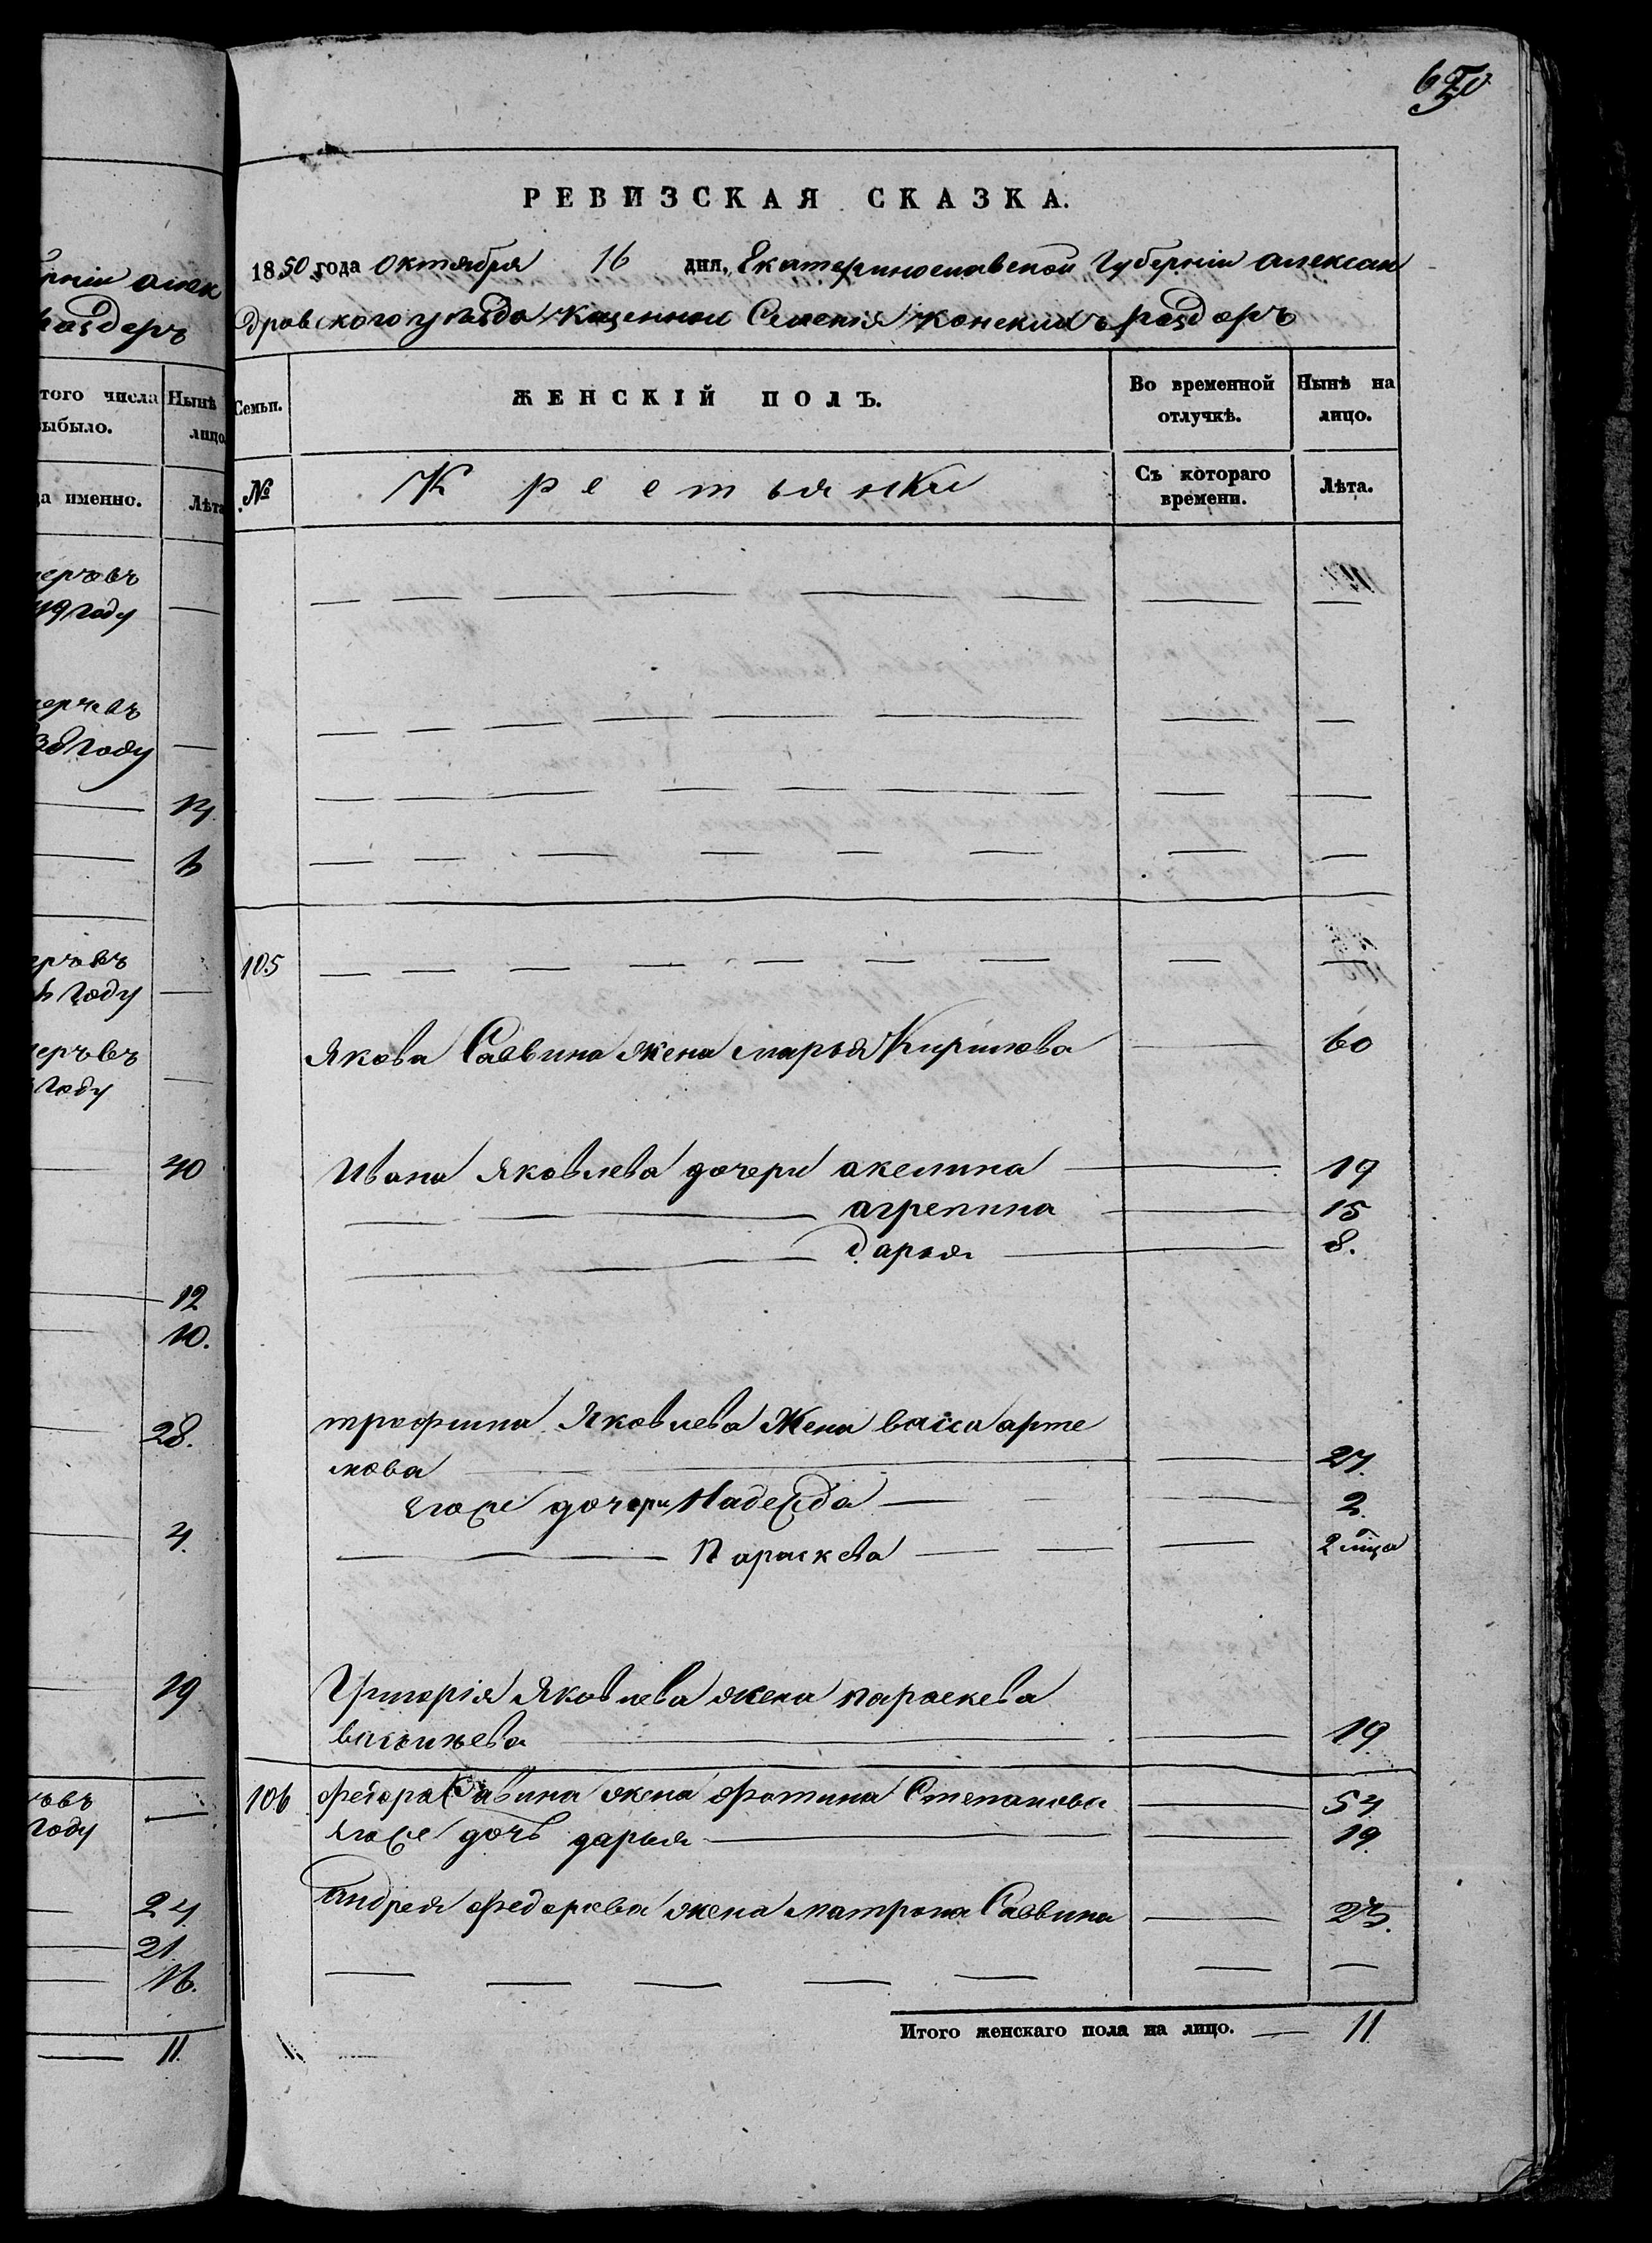 РЕВИЗСКАЯ СКАЗКА.
1850 года октября 16 дня, Екатеринославской Губерніи алексан
дровского уѣзда казенной Селенія конскихъ раздоръ
Семьи. ЖЕНСКІЙ ПОЛЪ. Во временной отлучкѣ. Нынѣ на лицо.
№ Крестьянки Съ котораго времени. Лѣта.
105
якова Саввина жена марья Кирилова 60
Ивана Яковлева дочери акелина 19
агрепина 15
дарья 8.
трофима Яковлева Жена васса арте
мова 27.
Его же дочери Надежда 2.
Параскева 2 мца
Григорія Яковлева жена параскева
19.
106 федора Савина жена фотина Степанова 54.
Его же дочь дарья 19.
андрея федорова жена матрона Саввина
Итого женскаго пола на лицо. 11.
того числа выбыло. Нынѣ лицо
да именно. Лѣта
рніи алек
раздеръ
меръ въ
49 году
меръ въ
38 году
14.
6
меръ въ
6 году
меръ въ
году
40
12
10.
28.
4.
19
году
24.
21.
16.
11.